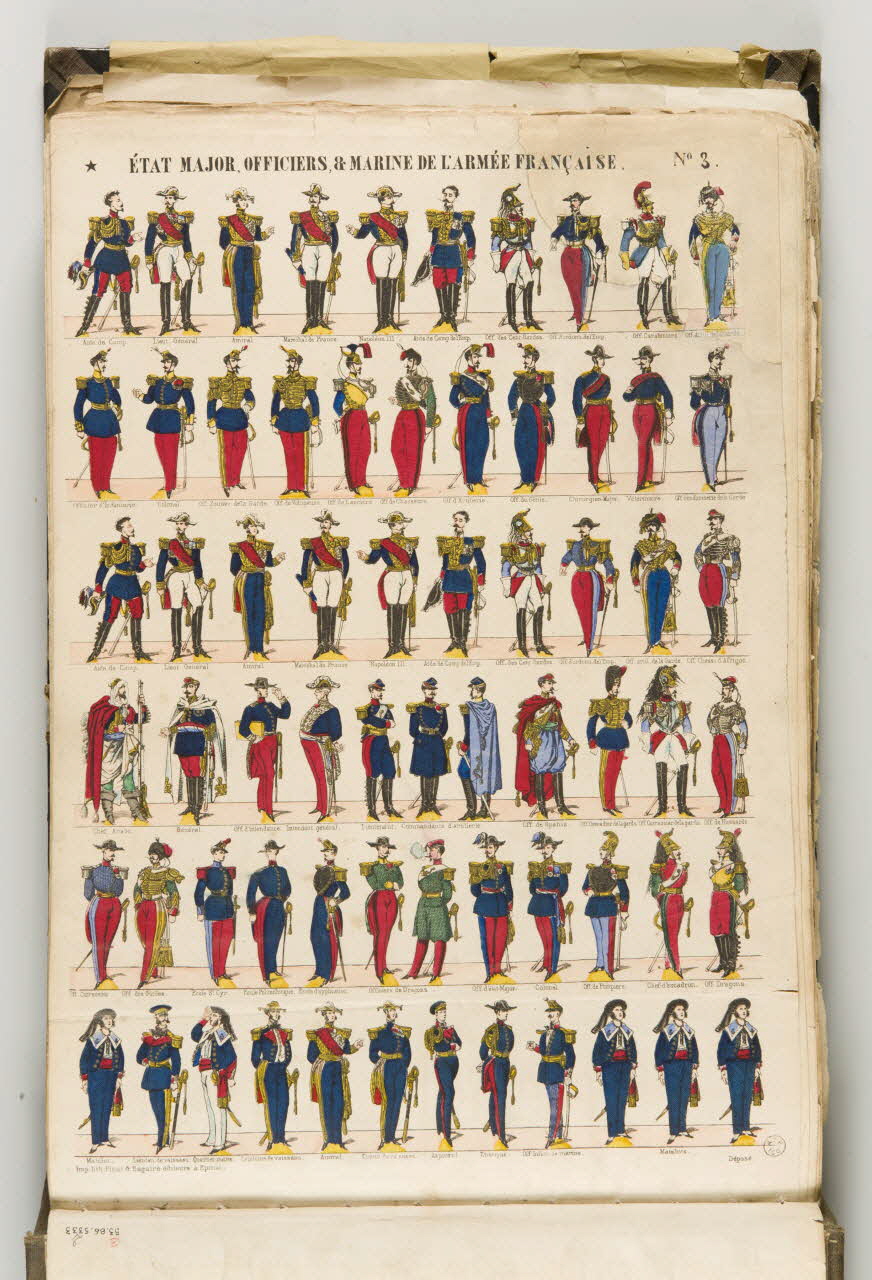 ★ ÉTAT MAJOR, OFFICIERS, & MARINE DE L'ARMÉE FRANÇAISE. Nº 3.
Aide de Camp. Lieut. Général Amiral Maréchal de France Napoléon III Aide de Camp de l'Emp. Off. des Cent-Gardes. Off. d'ordon. de l'Emp. Off. Carabiniers
Officier d'Infanterie. Colonel. Off. Zouaves de la Garde. Off. de Voltigeurs. Off. de Lanciers Off. de Chasseurs. Off. d'Artillerie. Off. du Génie. Chirurgien-Major. Vétérinaire. Off. de Gendarmerie de la Garde
Aide de Camp. Lieut. Général Amiral Maréchal de France Napoléon III. Aide de Camp de l'Emp. Off. des Cent Gardes Off. d'ordon. de l'Emp. Off. Artil. de la Garde. Off. Chass. d'Afrique.
Chef Arabe. Général. Off. d'intendance. Intendant général. Lieutenant. Commandants d'artillerie Off. de Spahis. Off. Grenadier de la garde. Off. Cuirassier de la garde. Off. de Hussards
Off. des Guides. Ecole St Cyr. Ecole Polytechnique. Ecole d'application. Officiers de Dragons Off. d'état-Major. Colonel. Off. de Pompiers. Chef d'escadron. Off. Dragons.
Matelot. Lieuten. de vaisseau. Quartier maitre. Capitaine de vaisseau. Amiral. Aspirant. Off. Infan. de marine. Matelots.
Imp. lith. Pinot & Sagaire éditeurs à Epinal. Déposé
53.86.5333